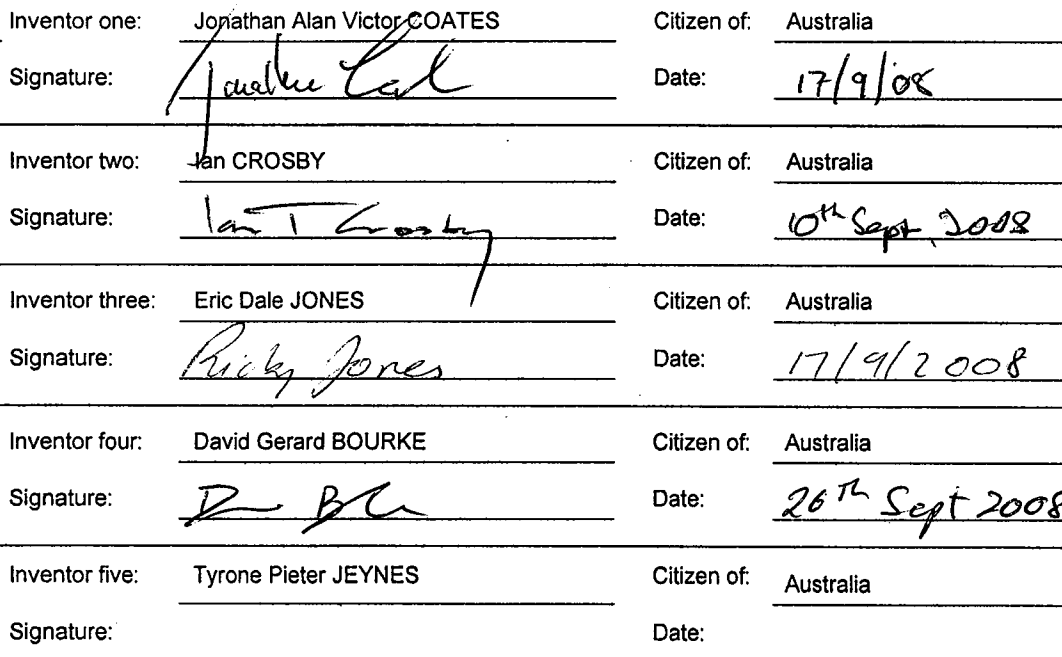 Inventor one: Jonathan Alan Victor COATES Citizen of: Australia
Signature: Date: 17/9/08
Inventor two: Ian CROSBY Citizen of: Australia
Signature: Ian T Crosby Date: 10th Sept, 2008
Inventor three: Eric Dale JONES Citizen of: Australia
Signature: Ricky Jones Date: 17/9/2008
Inventor four: David Gerard BOURKE Citizen of: Australia
Signature: Date: 26th Sept 2008
Inventor five: Tyrone Pieter JEYNES Citizen of: Australia
Signature: Date: